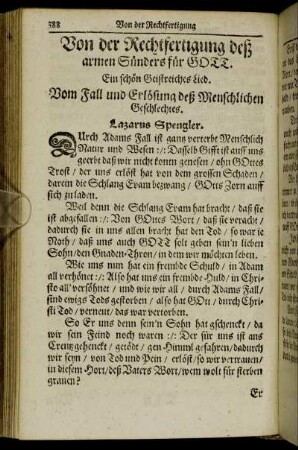 388 Von der Rechtfertigung
Von der Rechtfertigung deß
armen Sünders für GOTT.
Ein schön Geistreiches Lied.
Vom Fall und Erlösung deß Menschlichen
Geschlechtes.
Lazarus Spengler.
DUrch Adams Fall ist gantz verterbt Menschlich
Natur und Wesen :/: Dasselb Gifft ist auff uns
geerbt daß wir nicht konten genesen / ohn GOttes
Trost / der uns erlöst hat von dem grossen Schaden /
darein die Schlang Evam bezwang / GOtts Zorn auff
sich zu laden.
Weil denn die Schlang Evam hat bracht / daß sie
ist abgefallen :/: Von GOttes Wort / daß sie veracht /
dadurch sie in uns allen bracht hat den Tod / so war je
Noth / daß uns auch GOTT solt geben sein'n lieben
Sohn / den Gnaden-Thron / in dem wir möchten leben.
Wie uns nun hat ein fremde Schuld / in Adam
all verhönet :/: Also hat uns ein fremde Huld / in Chri-
sto all' versöhnet / und wie wir all / durch Adams Fall /
sind ewigs Tods gestorben / also hat GOtt / durch Chri-
sti Tod / verneut / das war vertorben.
So Er uns denn sein'n Sohn hat geschenckt / da
wir sein Feind noch waren :/: Der für uns ist ans
Creutz gehenckt / getödt / gen Himml gefahren / dadurch
wir seyn / von Tod und Pein / erlöst / so wir vertrauen /
in diesem Hort / deß Vaters Wort / wem wolt für sterben
grauen?
Er